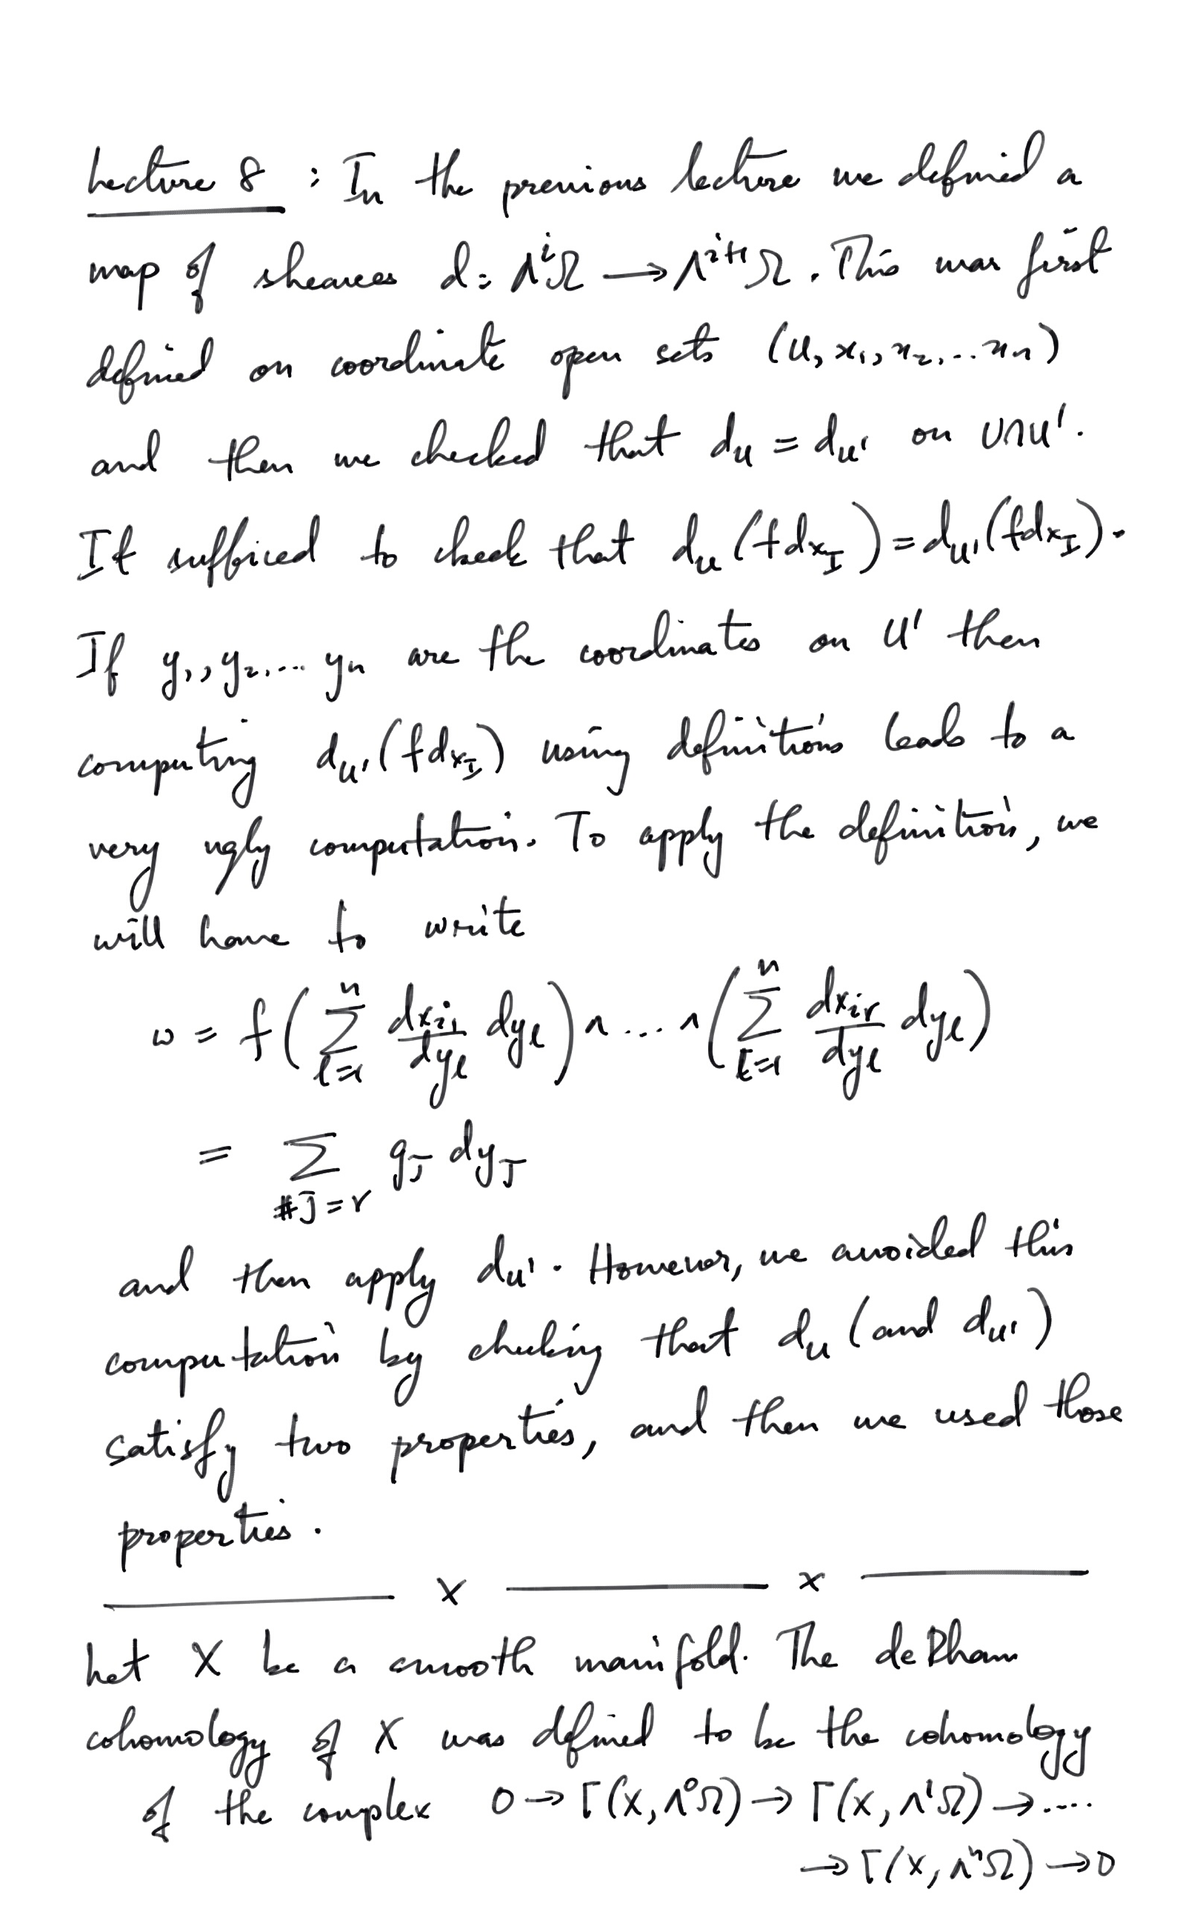 Lecture 8 : In the previous lecture we defined a
map of sheaves d: Λ^i Ω → Λ^{i+1} Ω . This was first
defined on coordinate open sets (U, x_1, x_2, ... x_n)
and then we checked that d_U = d_{U'} on U∩U'.
It sufficed to check that d_U (f dx_I) = d_{U'} (f dx_I).
If y_1, y_2, ... y_n are the coordinates on U' then
computing d_{U'} (f dx_I) using definitions leads to a
very ugly computation. To apply the definition, we
will have to write
ω = f ( ∑_{l=1}^n dx_{i_1}/dy_l dy_l ) ∧ ... ∧ ( ∑_{l=1}^n dx_{i_r}/dy_l dy_l )
= ∑_{#J=r} g_J dy_J
and then apply d_{U'} . However, we avoided this
computation by checking that d_U (and d_{U'})
satisfy two properties, and then we used those
properties .
——— x ——— x ———
Let X be a smooth manifold. The deRham
cohomology of X was defined to be the cohomology
of the complex 0 → Γ(X, Λ^0 Ω) → Γ(X, Λ^1 Ω) → ....
→ Γ(X, Λ^n Ω) → 0